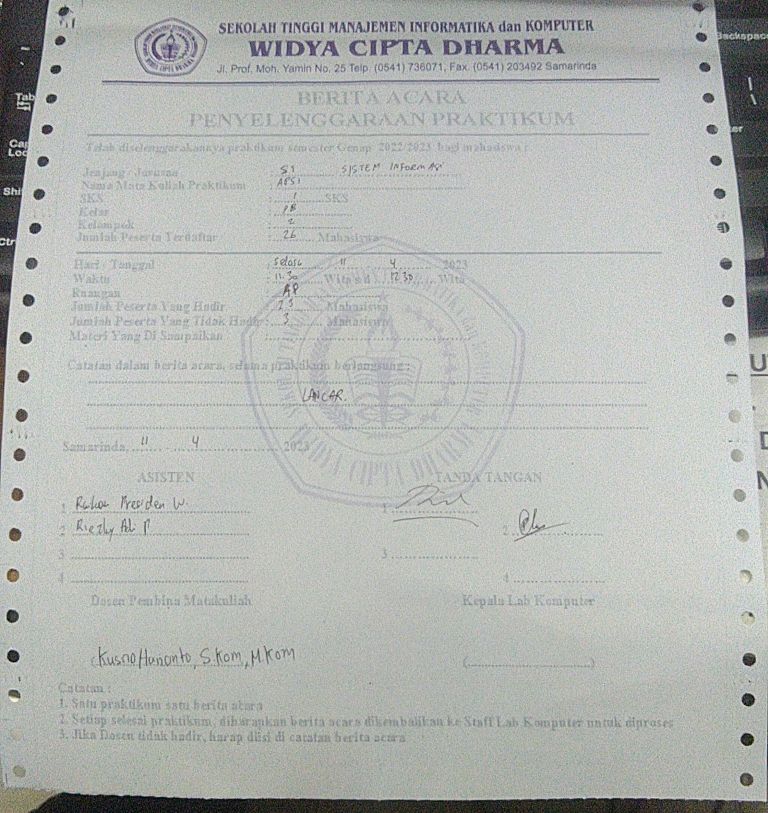 SEKOLAH TINGGI MANAJEMEN INFORMATIKA dan KOMPUTER
WIDYA CIPTA DHARMA
Jl. Prof. Moh. Yamin No. 25 Telp. (0541) 736071, Fax. (0541) 203492 Samarinda
BERITA ACARA
PENYELENGGARAAN PRAKTIKUM
Telah diselenggarakannya praktikum semester Genap 2022/2023 bagi mahasiswa :
Jenjang / Jurusan : S1 SISTEM INFORMASI
Nama Mata Kuliah Praktikum : APSI
SKS : 1 SKS
Kelas : PB
Kelompok : 2
Jumlah Peserta Terdaftar : 26 Mahasiswa
Hari / Tanggal : Selasa 11 4 2023
Waktu : 11.30 Wita s/d 12.30 Wita
Ruangan : AP
Jumlah Peserta Yang Hadir : 23 Mahasiswa
Jumlah Peserta Yang Tidak Hadir : 3 Mahasiswa
Materi Yang Di Sampaikan :
Catatan dalam berita acara, selama praktikum berlangsung :
LANCAR.
Samarinda, 11 - 4 2023
ASISTEN TANDA TANGAN
1 Presiden W. 1
2 Riezky P 2
3 3
4 4
Dosen Pembina Matakuliah Kepala Lab Komputer
Kusno Harianto, S.Kom, M.Kom (..............................)
Catatan :
1. Satu praktikum satu berita acara
2. Setiap selesai praktikum, diharapkan berita acara dikembalikan ke Staff Lab Komputer untuk diproses
3. Jika Dosen tidak hadir, harap diisi di catatan berita acara
WIDYA CIPTA DHARMA
Backspace
Tab